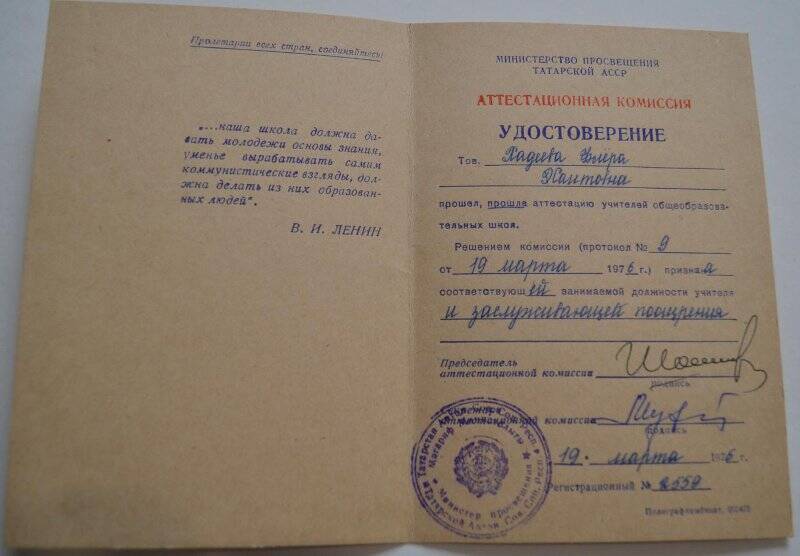 Пролетарии всех стран, соединяйтесь!
„...наша школа должна да-
вать молодежи основы знания,
уменье вырабатывать самим
коммунистические взгляды, дол-
жна делать из них образован-
ных людей".
В. И. ЛЕНИН
МИНИСТЕРСТВО ПРОСВЕЩЕНИЯ
ТАТАРСКОЙ АССР
АТТЕСТАЦИОННАЯ КОМИССИЯ
УДОСТОВЕРЕНИЕ
Тов. Хадеева
прошел, прошла аттестацию учителей общеобразова-
тельных школ.
Решением комиссии (протокол № 9
от 19 марта 1976 г.) признана
соответствующей занимаемой должности учителя
и заслуживающей поощрения
Председатель
аттестационной комиссии
подпись
Секретарь
аттестационной комиссии
подпись
19 марта 1976 г.
Регистрационный № 2559